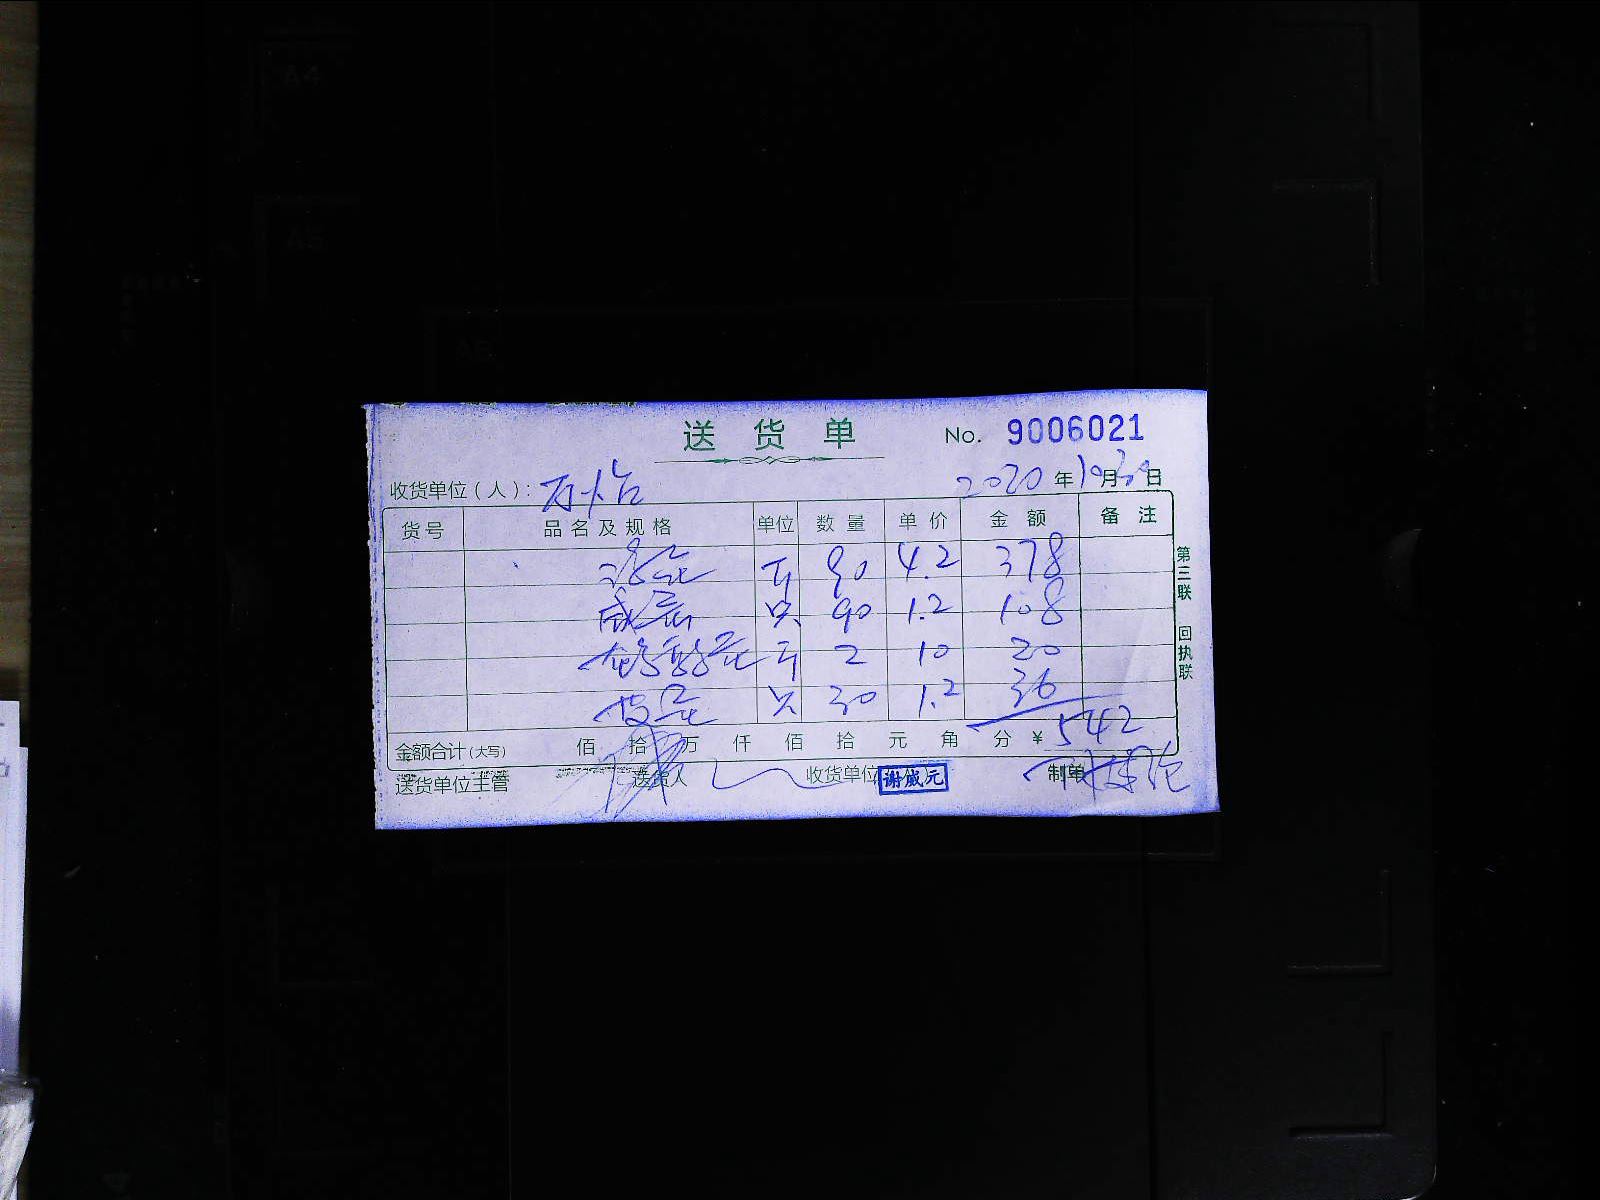 A4
A5
送货单 No. 9006021
收货单位（人）：万怡 2020年10月30日
货号 品名及规格 单位 数量 单价 金额 备注
90 4.2 378
咸蛋 只 90 1.2 108
2 10 20
皮蛋 只 30 1.2 36
金额合计(大写) 佰 拾 万 仟 佰 拾 元 角 分 ¥ 542
送货单位主管 送货人 收货单位 谢威元 制单
第三联 回执联